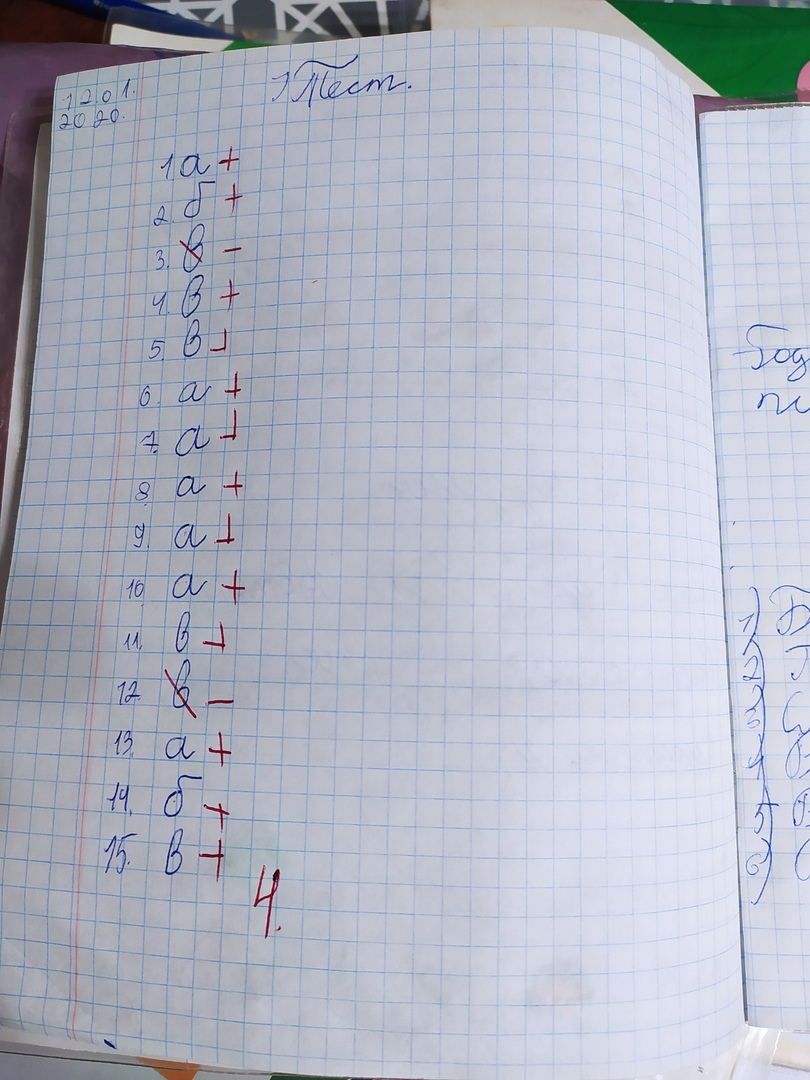 12.01.
2020.
Тест.
1. а +
2. б +
3. в -
4. в +
5. в +
6. а +
7. а +
8. а +
9. а +
10. а +
11. в +
12. в -
13. а +
14. б +
15. в +
4.
1)
2)
3)
4)
5)
6)